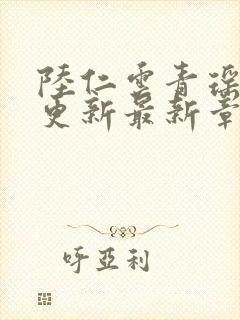 陸仁雲青瑶
更新最新章
呀亞利